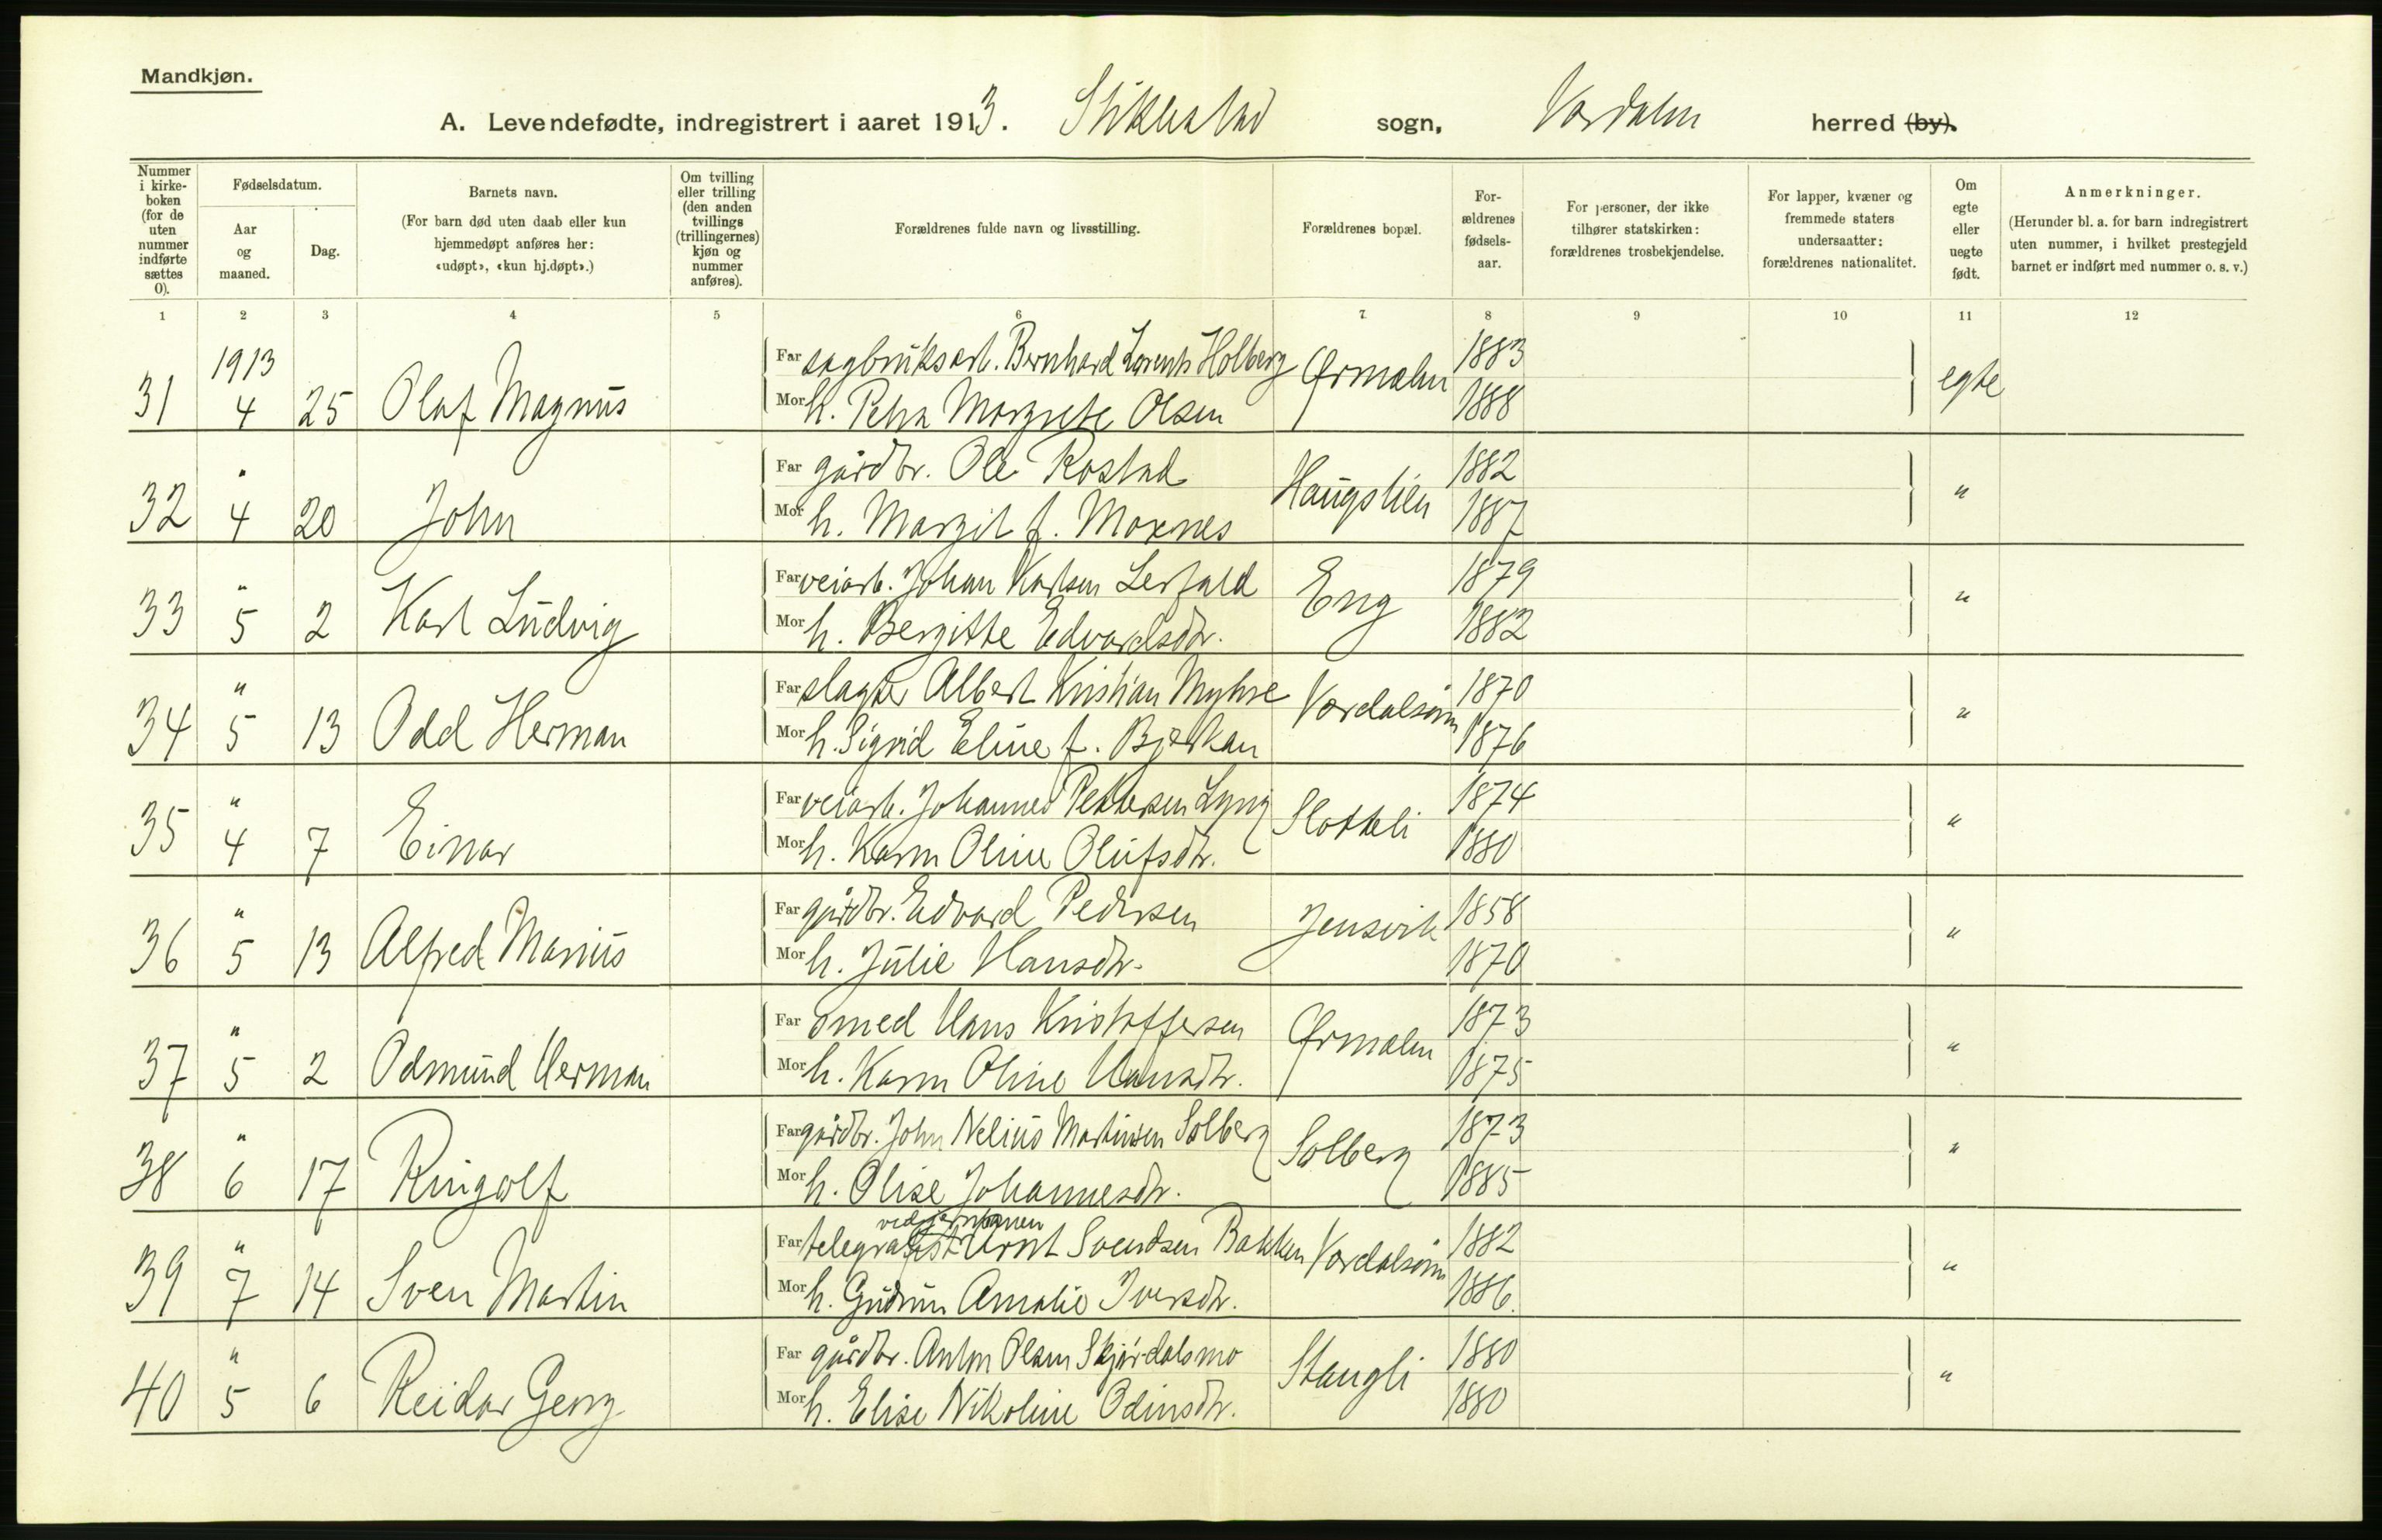 Mandkjøn.
A. Levendefødte, indregistrert i aaret 1913. Stiklestad sogn, Værdalen herred (by).
Nummer i kirke-boken (for de uten nummer indførte sættes 0).
Fødselsdatum.
Aar og maaned.
Dag.
Barnets navn.
(For barn død uten daab eller kun hjemmedøpt anføres her: «udøpt», «kun hj.døpt».)
Om tvilling eller trilling (den anden tvillings (trillingernes) kjøn og nummer anføres).
Forældrenes fulde navn og livsstilling.
Forældrenes bopæl.
For-ældrenes fødsels-aar.
For personer, der ikke tilhører statskirken: forældrenes trosbekjendelse.
For lapper, kvæner og fremmede staters undersaatter: forældrenes nationalitet.
Om egte eller uegte født.
Anmerkninger.
(Herunder bl. a. for barn indregistrert uten nummer, i hvilket prestegjeld barnet er indført med nummer o. s. v.)
1 2 3 4 5 6 7 8 9 10 11 12
1913 Far sagbruksarb. Bernhard Lorents Holberg Ørmælen 1883
31 4 25 Olaf Magnus Mor h. Petra Margrete Olsen 1888 egte
" Far gårdbr. Ole Rostad Haugslien 1882
32 4 20 John Mor h. Margit f. Moxnes 1887 "
" Far veiarb. Johan Karlsen Lerfald Eng 1879
33 5 2 Karl Ludvig Mor h. Bergitte Edvardsdtr. 1882 "
" Far slagter Albert Kristian Myhre Værdalsøren 1870
34 5 13 Odd Herman Mor h. Sigrid Eline f. Bjerkan 1876 "
" Far veiarb. Johannes Pettersen Lyng Slotteli 1874
35 4 7 Einar Mor h. Karen Oline Olufsdtr. 1880 "
" Far gårdbr. Edvard Pedersen Jensvik 1858
36 5 13 Alfred Marius Mor h. Julie Hansdtr. 1870 "
" Far smed Hans Kristoffersen Ørmælen 1873
37 5 2 Odmund Herman Mor h. Karen Oline Hansdtr. 1875 "
" Far gårdbr. John Nelius Martinsen Solberg Solberg 1873
38 6 17 Ringolf Mor h. Olise Johannesdtr. 1885 "
ved jernbanen
" Far telegrafist Arnt Svendsen Bakken Værdalsøren 1882
39 7 14 Sven Martin Mor h. Gudrun Amalie Iversdtr. 1886. "
" Far gårdbr. Anton Olsen Skjørdalsmo Stangli 1880
40 5 6 Reidar Georg Mor h. Elise Nikoline Odinsdtr. 1880 "